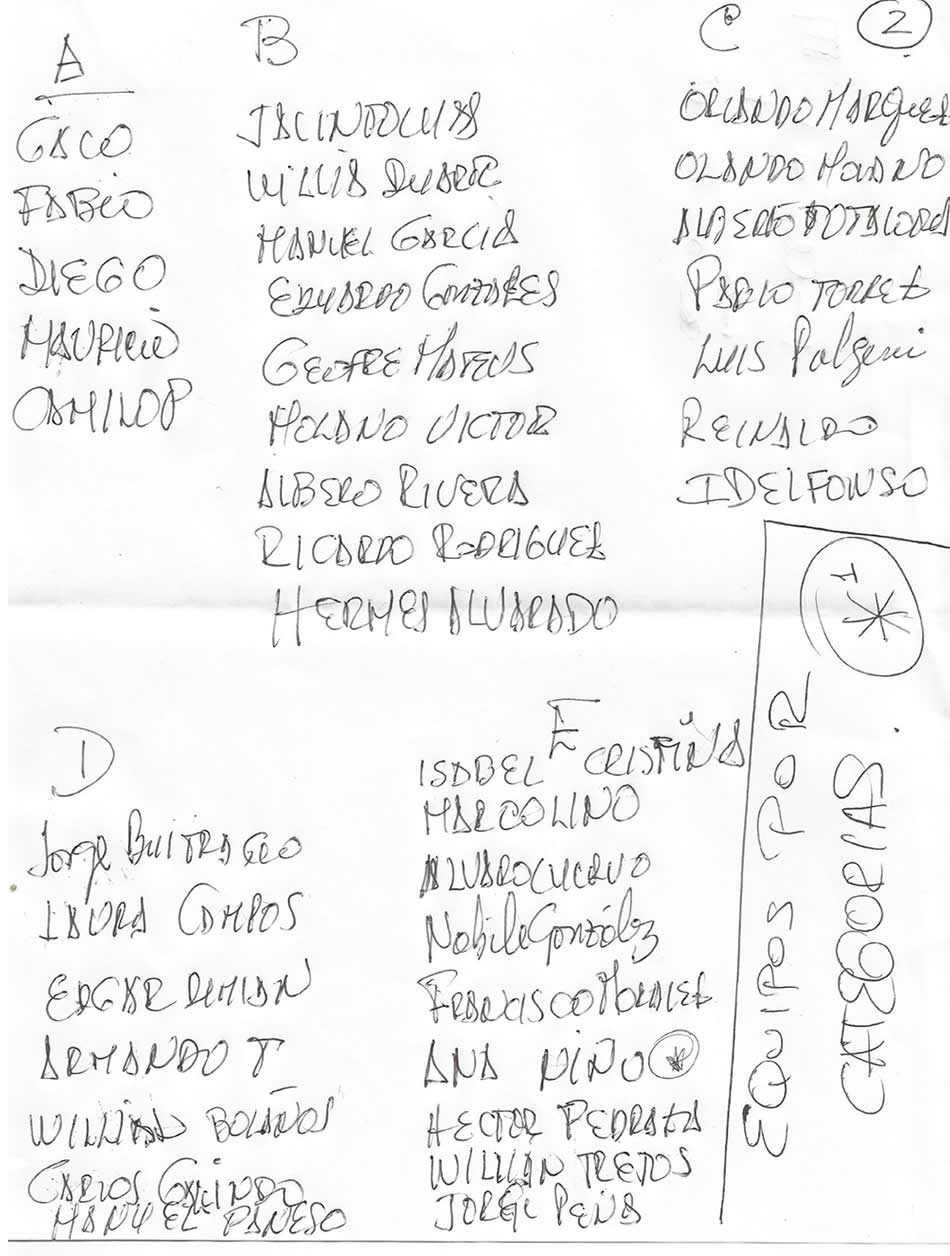 A
GACO
FABIO
DIEGO
MAURICIO
CAMILO P
B
JACINTO LUIS
WILLIA DUARTE
MANUEL GARCIA
EDUARDO GONZALES
GEOFRE MATEUS
MOLANO VICTOR
ALBERO RIVERA
RICARDO RODRIGUEZ
HERMES ALVARADO
C
2
ORLANDO MARQUEZ
OLANDO MOLANO
ALBERTO BOTALORA
PABLO TORREZ
LUIS Pulgarin
REINALDO
IDELFONSO
D
Jorge BUITRAGO
LAURA CAMPOS
EDGAR DAMIAN
ARMANDO T
WILLIAN BOLAÑOS
CARLOS GALINDO
MANUEL PANESO
E
ISABEL CRISTINA
MARCOLINO
ALVARO CUERVO
Nobile González
FRANCISCO MORALEZ
ANA NIÑO *
HECTOR PEDRAZA
WILLIAN TREJOS
JORGE PEÑA
* 1
EQUIPOS POR
CATEGORIAS.